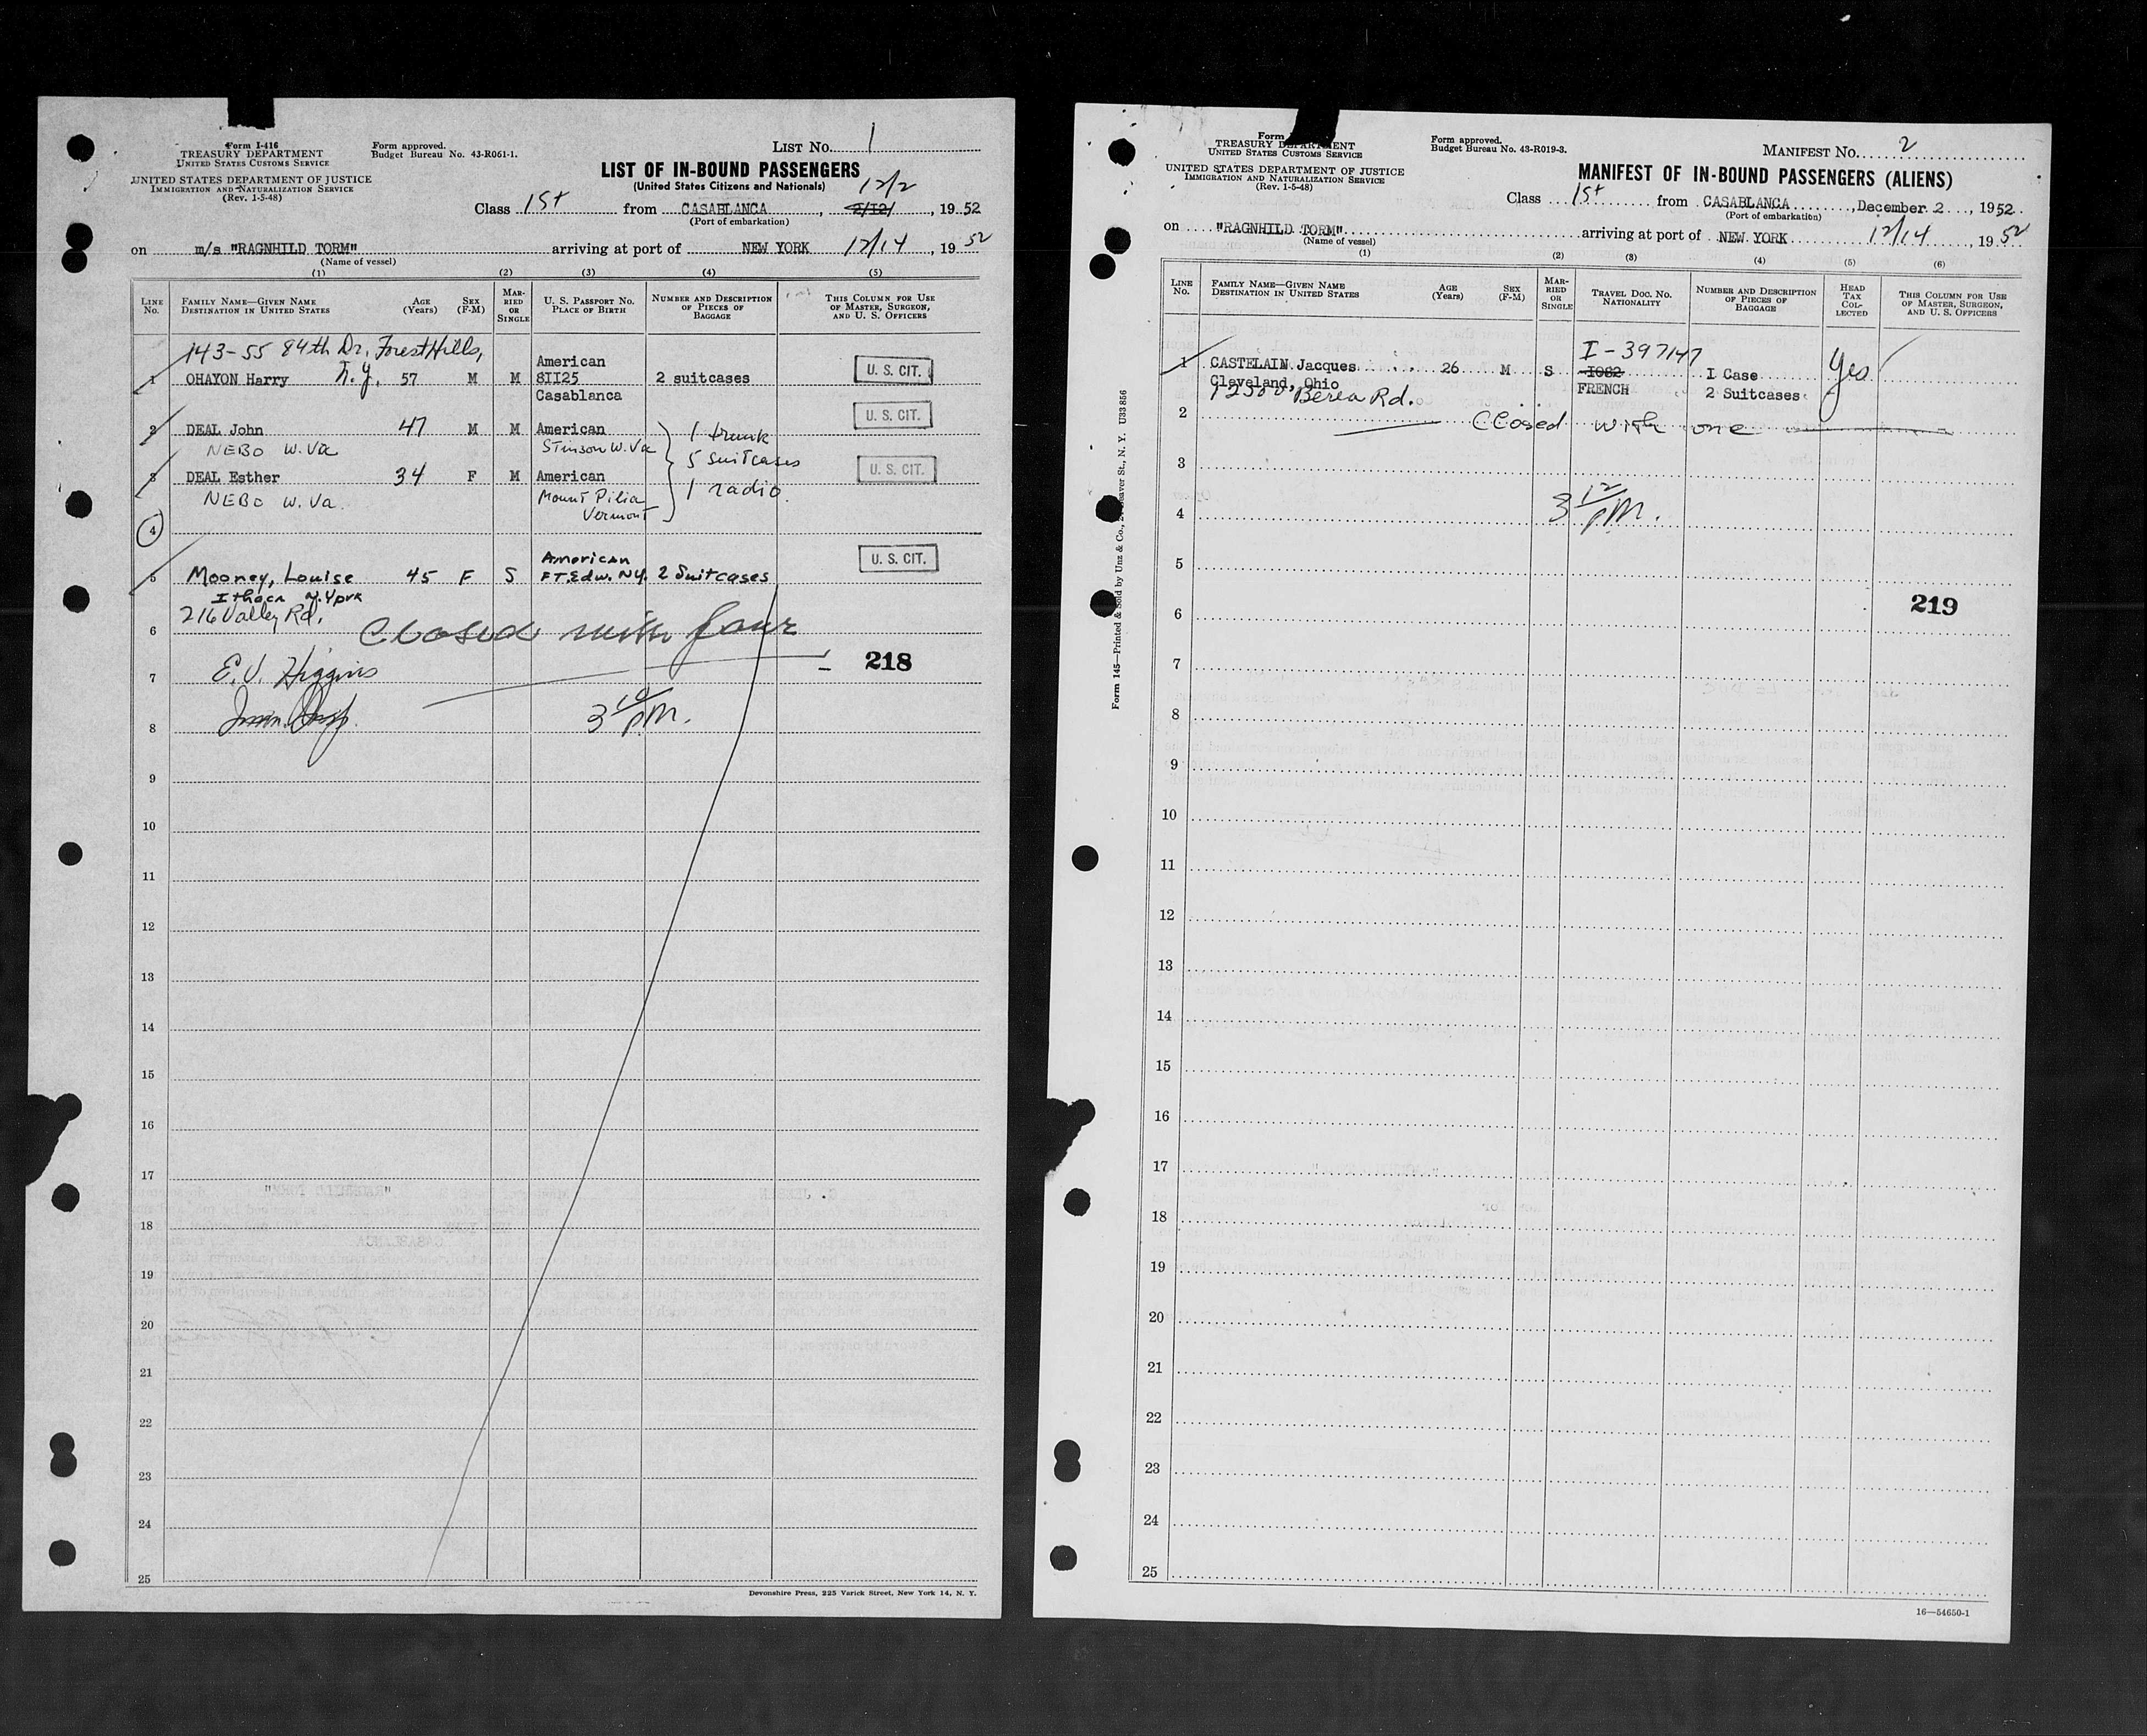 Form I-416
TREASURY DEPARTMENT
UNITED STATES CUSTOMS SERVICE
UNITED STATES DEPARTMENT OF JUSTICE
IMMIGRATION AND NATURALIZATION SERVICE
(Rev. 1-5-48)
Form approved.
Budget Bureau No. 43-R061-1.
LIST No. 1
LIST OF IN-BOUND PASSENGERS
(United States Citizens and Nationals)
12/2
Class 1st from CASABLANCA, 2/12/, 1952
(Port of embarkation)
on m/s "RAGNHILD TORM" arriving at port of NEW YORK 12/14, 1952
(Name of vessel)
(1) (2) (3) (4) (5)
LINE No. FAMILY NAME—GIVEN NAME DESTINATION IN UNITED STATES AGE (Years) SEX (F-M) MARRIED OR SINGLE U. S. PASSPORT NO. PLACE OF BIRTH NUMBER AND DESCRIPTION OF PIECES OF BAGGAGE THIS COLUMN FOR USE OF MASTER, SURGEON, AND U. S. OFFICERS
143-55 84th Dr. Forest Hills,
American
1 OHAYON Harry N.Y. 57 M M 8II25 2 suitcases U. S. CIT.
Casablanca
2 DEAL John 47 M M American 1 trunk U. S. CIT.
NEBO W. Va Stinson W. Va 5 suitcases
3 DEAL Esther 34 F M American U. S. CIT.
NEBO W. Va. Mount Pilia 1 radio.
Vermont
4
American
5 Mooney, Louise 45 F S FT. Edw. NY. 2 Suitcases U. S. CIT.
Ithaca N. York
216 Valley Rd.
6 Closed with four
218
7 E. V. Higgins
3 10 PM.
8
9
10
11
12
13
14
15
16
17
18
19
20
21
22
23
24
25
Devonshire Press, 225 Varick Street, New York 14, N. Y.
Form
TREASURY DEPARTMENT
UNITED STATES CUSTOMS SERVICE
UNITED STATES DEPARTMENT OF JUSTICE
IMMIGRATION AND NATURALIZATION SERVICE
(Rev. 1-5-48)
Form approved.
Budget Bureau No. 43-R019-3.
MANIFEST No. 2
MANIFEST OF IN-BOUND PASSENGERS (ALIENS)
Class 1st from CASABLANCA, December 2, 1952
(Port of embarkation)
on "RAGNHILD TORM" arriving at port of NEW YORK 12/14, 1952
(Name of vessel)
(1) (2) (3) (4) (5) (6)
LINE No. FAMILY NAME—GIVEN NAME DESTINATION IN UNITED STATES AGE (Years) SEX (F-M) MARRIED OR SINGLE TRAVEL DOC. NO. NATIONALITY NUMBER AND DESCRIPTION OF PIECES OF BAGGAGE HEAD TAX COLLECTED THIS COLUMN FOR USE OF MASTER, SURGEON, AND U. S. OFFICERS
I-397147
1 CASTELAIN Jacques 26 M S I082 I Case Yes
Cleveland, Ohio FRENCH 2 Suitcases
12500 Berea Rd.
2 Closed with one
3
3 12 PM.
4
5
6 219
7
8
9
10
11
12
13
14
15
16
17
18
19
20
21
22
23
24
25
Form 145—Printed & Sold by Unz & Co., Beaver St., N. Y. U33856
16—54650-1